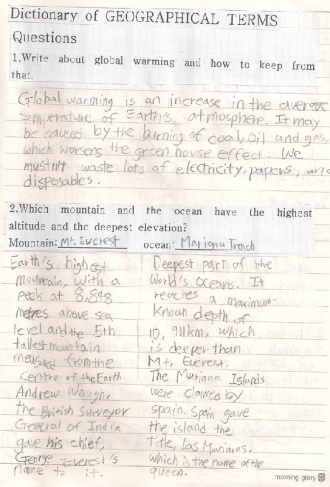 Dictionary of GEOGRAPHICAL TERMS
Questions
1.Write about global warming and how to keep from
that.
Global warming is an increase in the average
temperature of Earth's atmosphere. It may
be caused by the burning of coal, oil and gas,
which worsens the green house effect. We
mustn't waste lots of electricity, papers, and
disposables.
2.Which mountain and the ocean have the highest
altitude and the deepest elevation?
Mountain: Mt. Everest ocean: Mariana Trench
Earth's highest
mountain, with a
peak at 8,848
metres above sea
level and the 5th
tallest mountain
measured from the
Centre of the Earth
Andrew Waugh,
the British Surveyor
General of India
gave his chief,
George Everest's
name to it.
Deepest part of the
World's Oceans. It
reaches a maximum-
known depth of
10,911km, which
is deeper than
Mt. Everest.
The Mariana Islands
were claimed by
spain. Spain gave
the island the
title, Las Marianas.
which is the name of the
queen.
morning glory